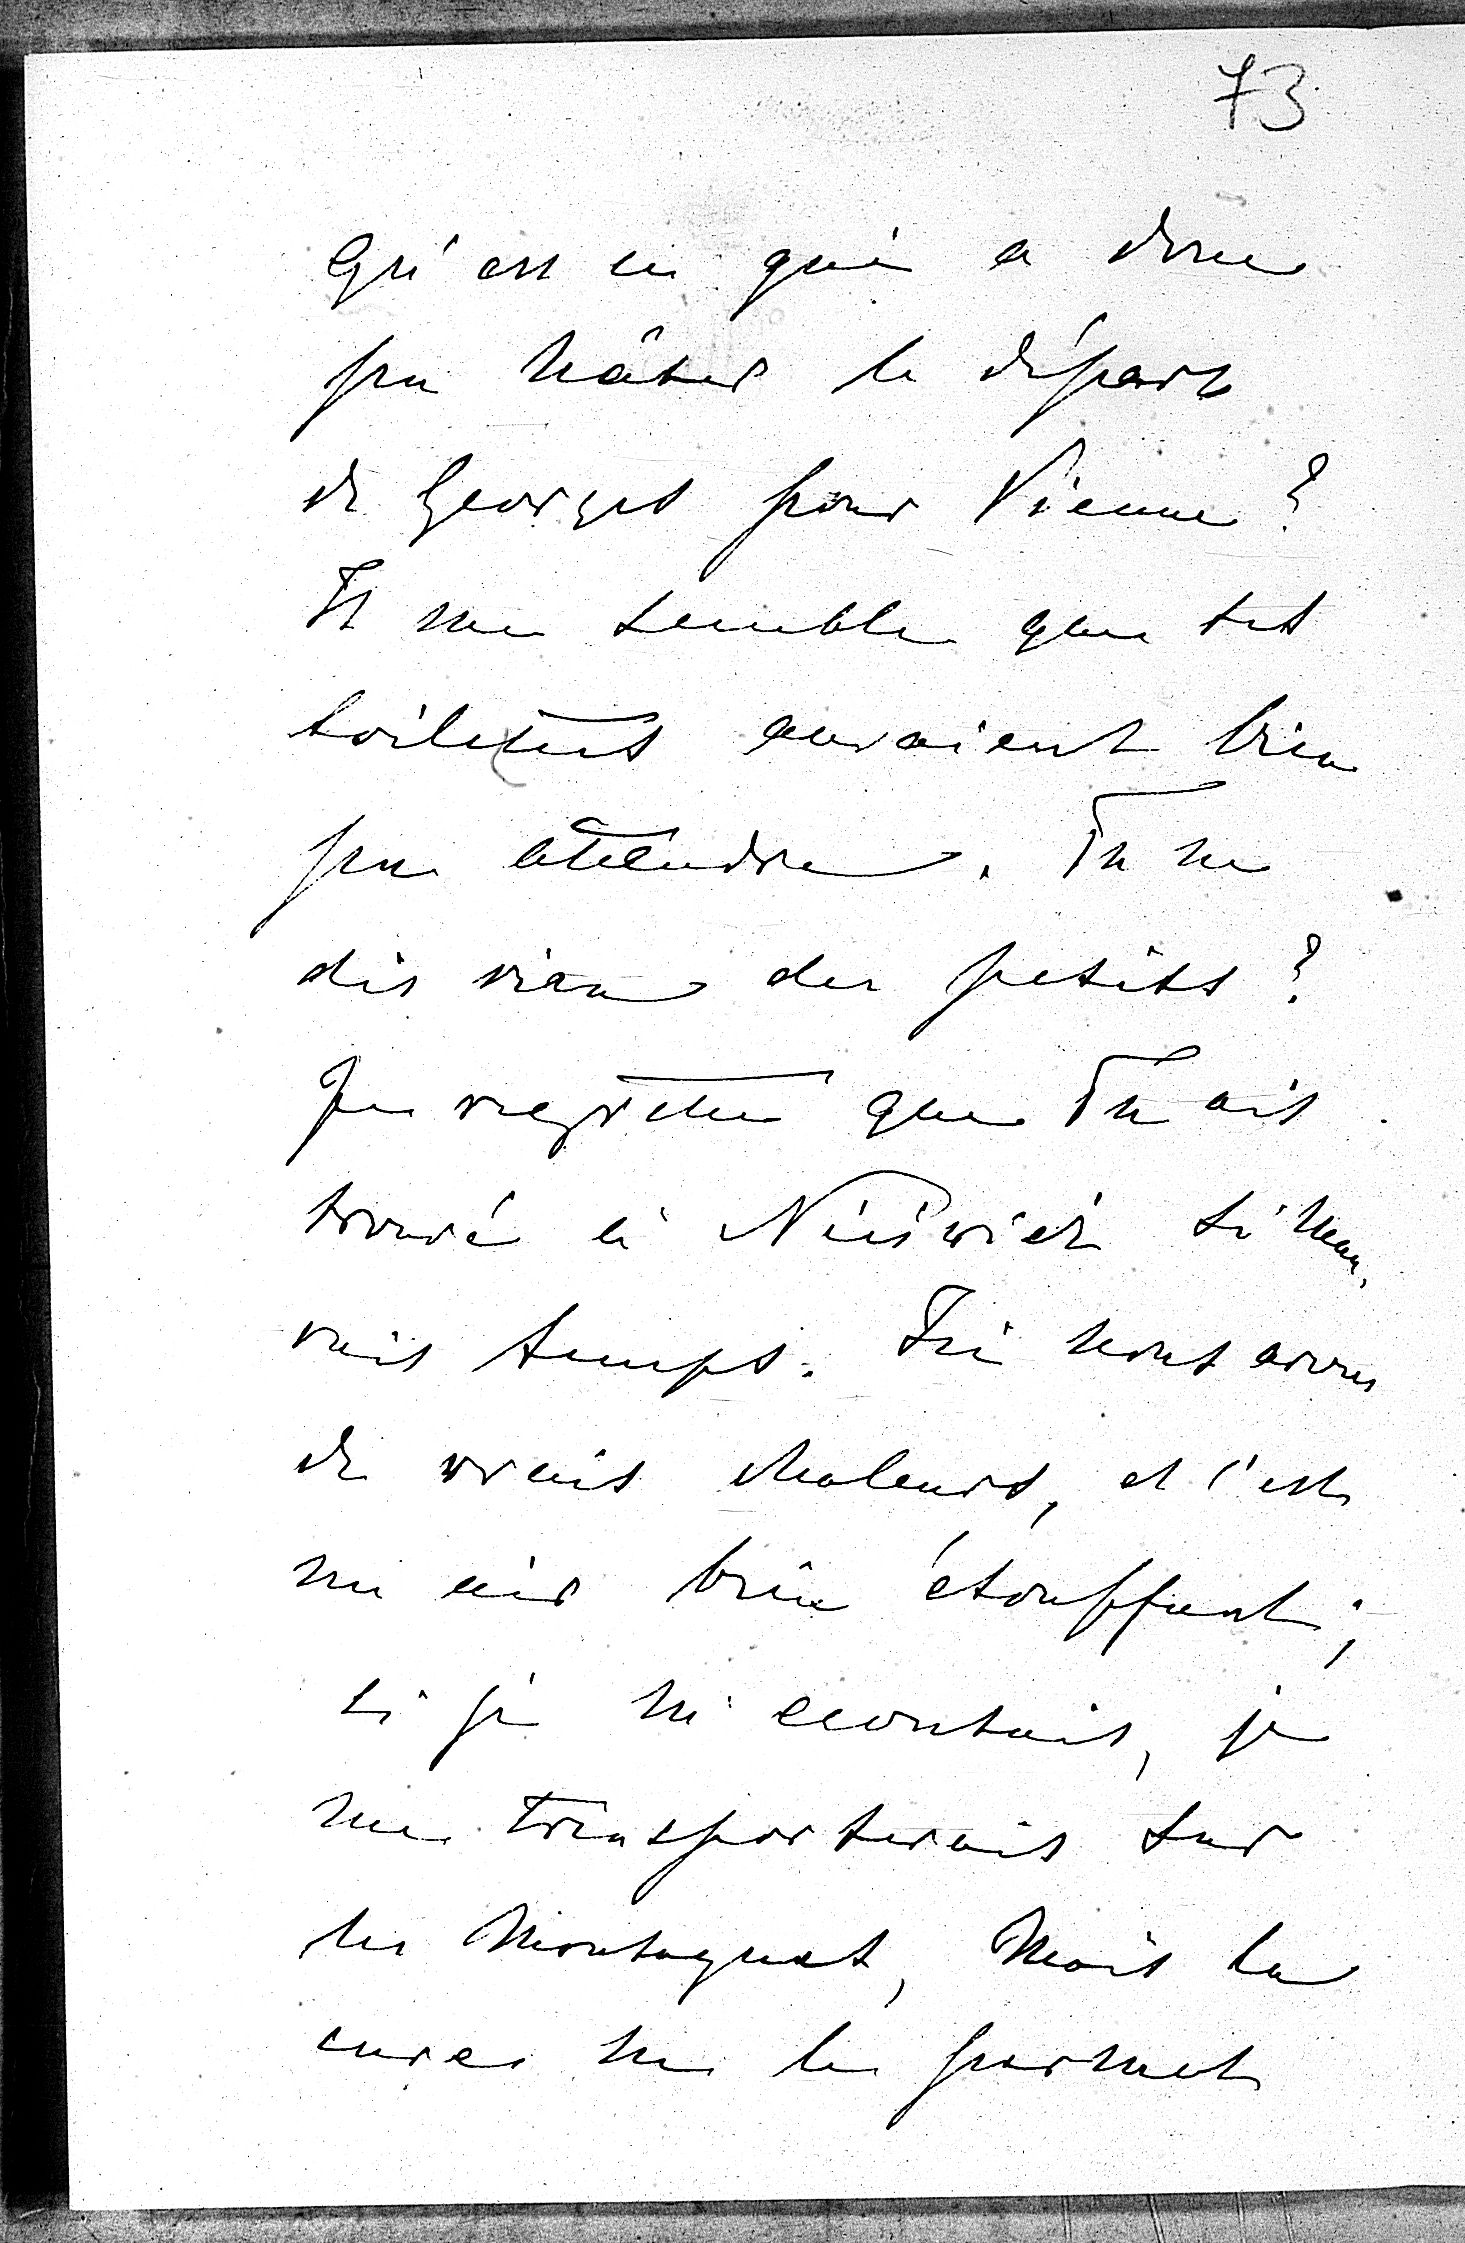 73
Qu'est ce qui a donc
pu hâter le départ
de Georges pour Vienne ?
Il me semble que tes
toilettes auraient bien
pu attendre. Tu ne
dis rien des petits ?
Je regrette que Tu ais
trouvé à Nieśwież si mau,
vais temps. Ici nous avons
de vrais chaleurs, et c'est
un air bien étouffant ;
si je m'ecoutais, je
me transporterais sur
les Montagnes, Mais la
cure ne le permet